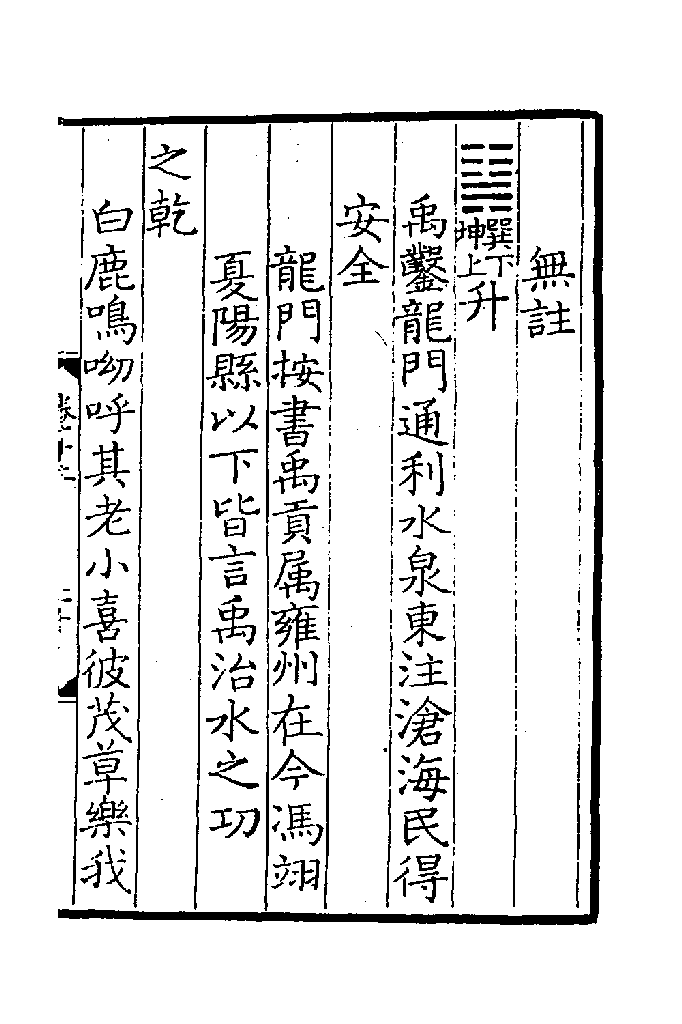 無註
䷭巽下坤上升
禹鑿龍門通利水泉東注滄海民得
安全
龍門按書禹貢属雍州在今馮翊
夏陽縣以下皆言禹治水之功
之乾
白鹿鳴呦呼其老小喜彼茂草樂我